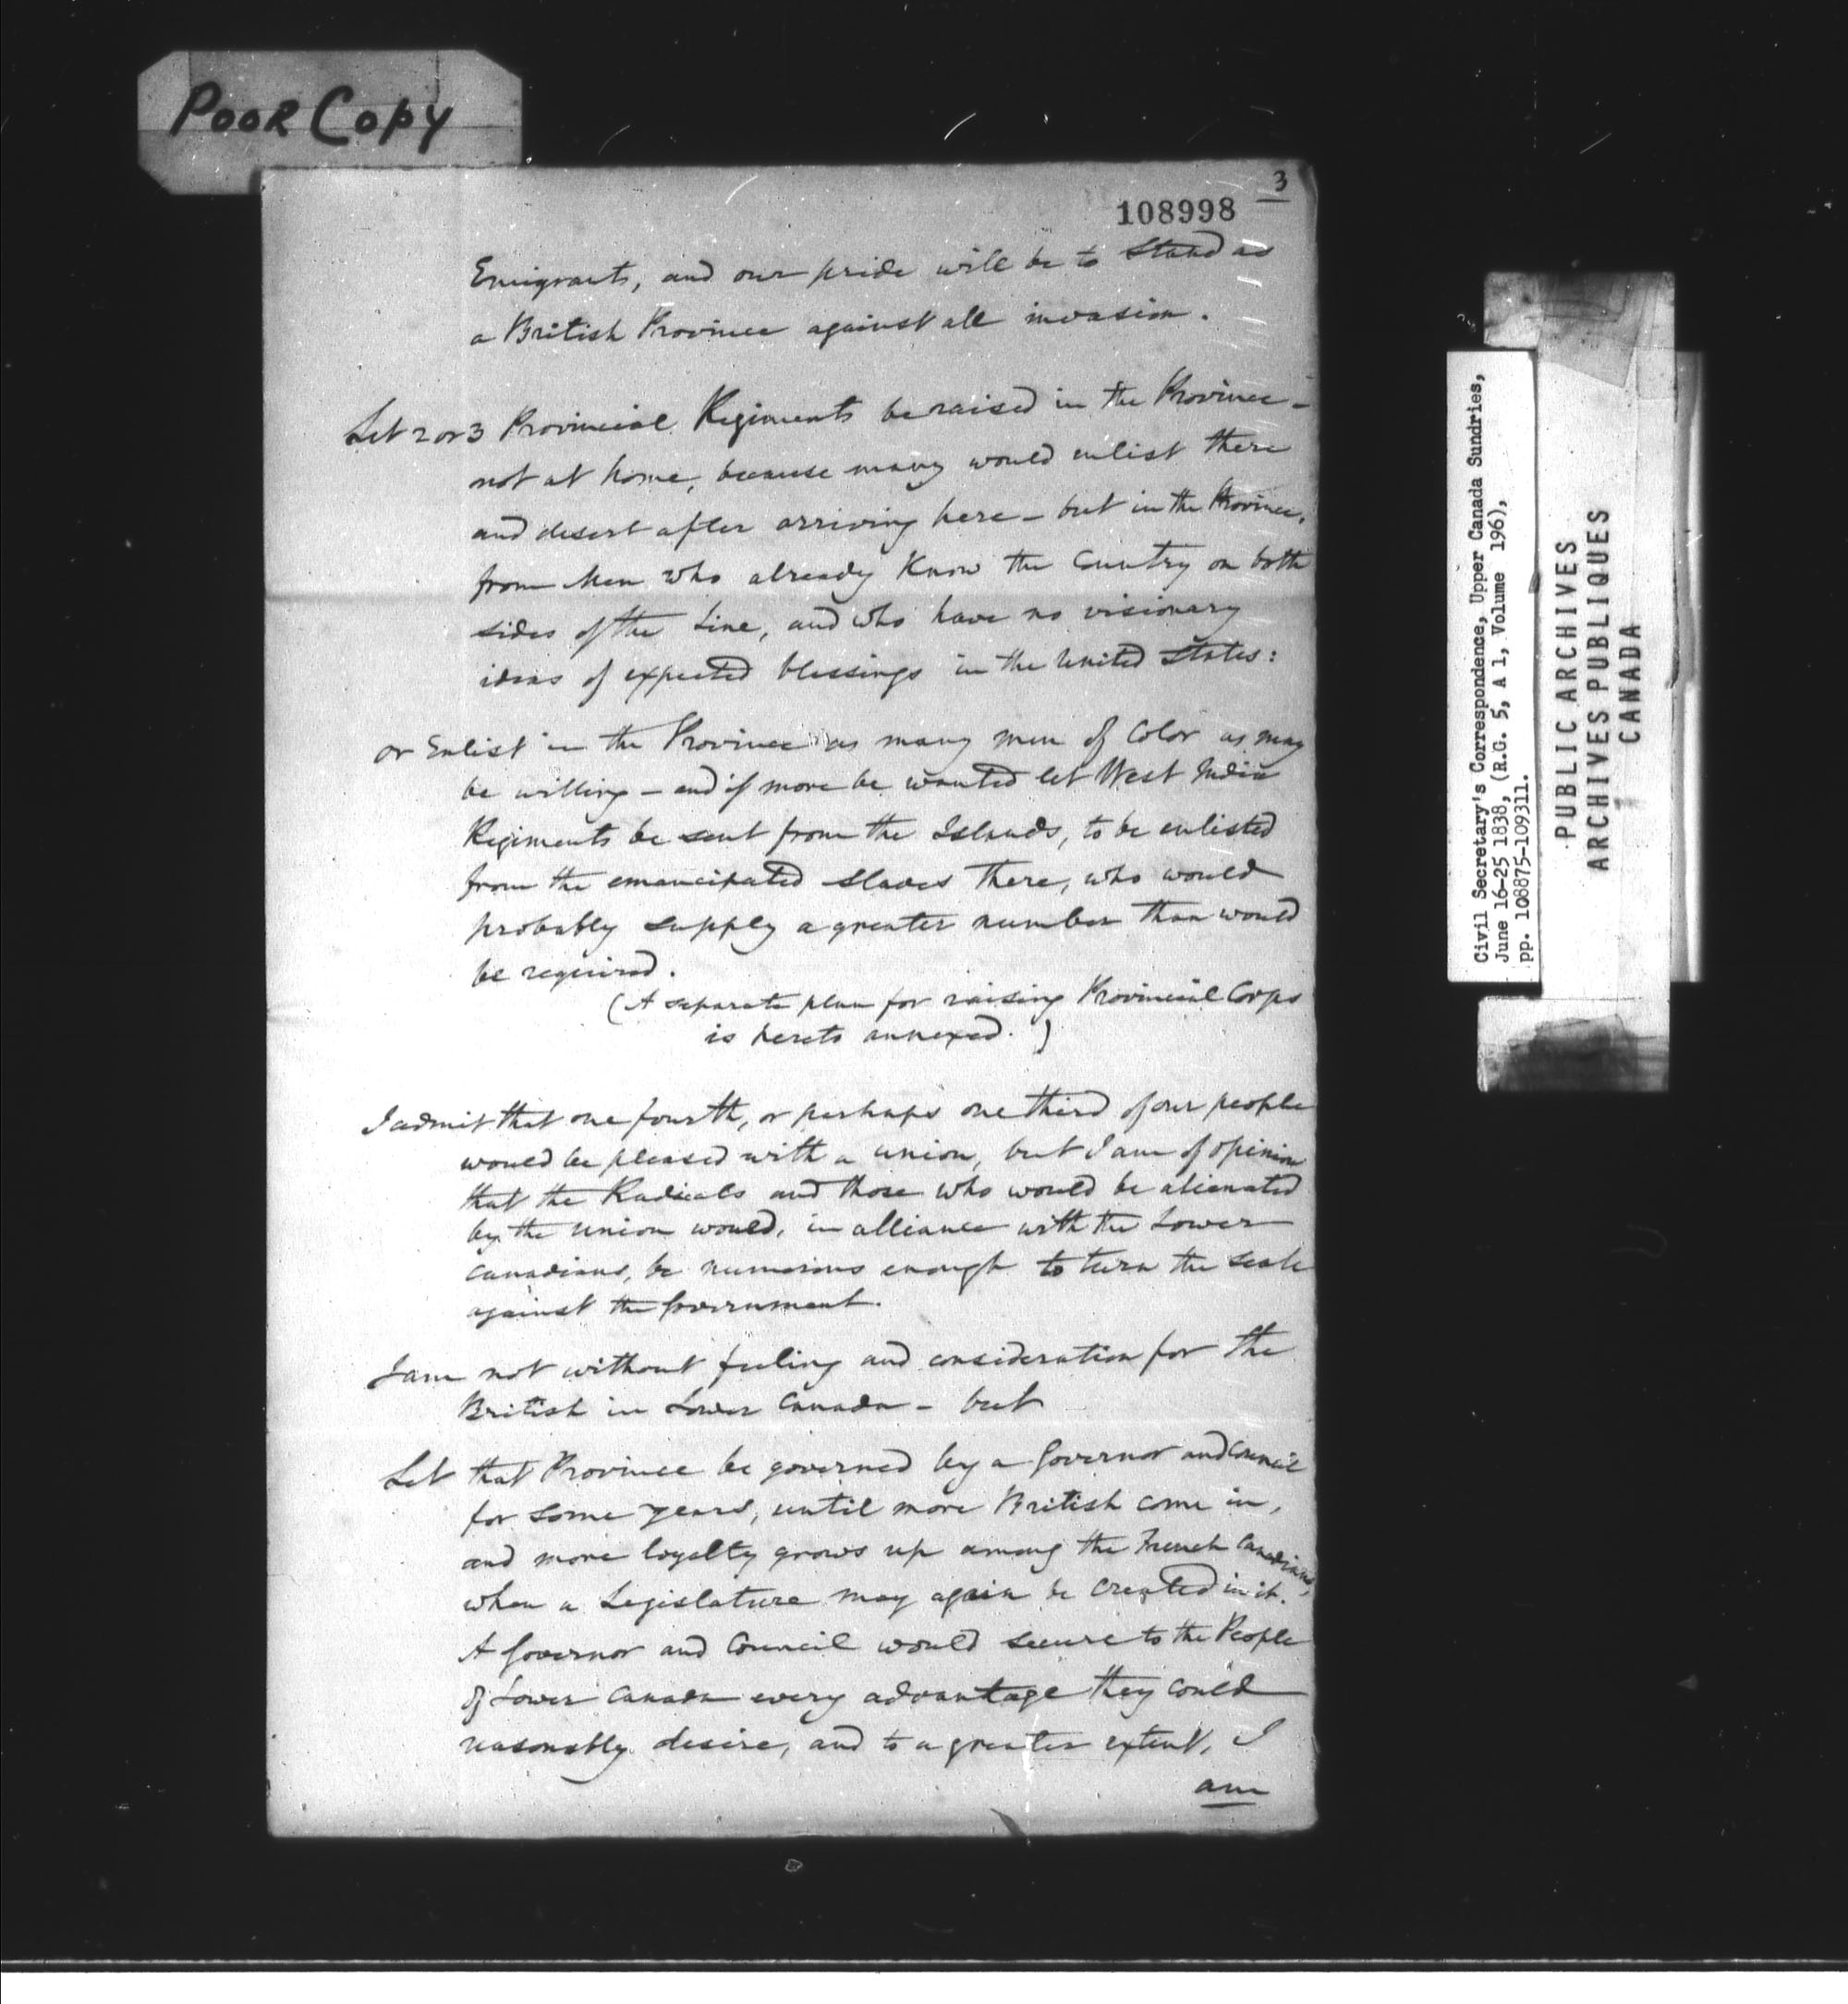 POOR COPY
3
108998
Emigrants, and our pride will be to stand as
a British Province against all invasion.
Let 2 or 3 Provincial Regiments be raised in the Province –
not at home, because many would enlist there
and desert after arriving here – but in the Province,
from Men who already Know the Country on both
sides of the Line, and who have no visionary
ideas of expected blessings in the United States:
or Enlist in the Province as many men of Color as may
be willing – and if more be wanted let West India
Regiments be sent from the Islands, to be enlisted
from the emancipated Slaves there, who would
probably supply a greater number than would
be required.
(A separate plan for raising Provincial Corps
is hereto annexed.)
I admit that one fourth, or perhaps one third of our people
would be pleased with a union, but I am of opinion
that the Radicals and those who would be alienated
by the union would, in alliance with the Lower
Canadians, be numerous enough to turn the scale
against the Government.
I am not without feeling and consideration for the
British in Lower Canada – but
Let that Province be governed by a Governor and Council
for some years, until more British come in,
and more loyalty grows up among the French Canadians,
when a Legislature may again be created in it.
A Governor and Council would secure to the People
of Lower Canada every advantage they could
reasonably desire, and to a greater extent, I
am
Civil Secretary's Correspondence, Upper Canada Sundries,
June 16-25 1838, (R.G. 5, A 1, Volume 196),
pp. 108875-109311.
PUBLIC ARCHIVES
ARCHIVES PUBLIQUES
CANADA